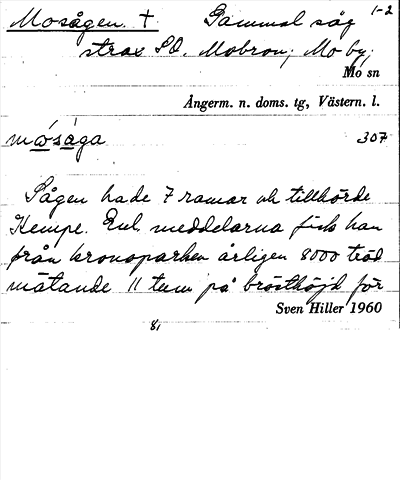 Mosågen. † Gammal såg 1-2
strax SO. Mobron; Mo by;
Mo sn
Ångerm. n. doms. tg, Västern. l.
mósàga 307
Sågen hade 7 ramar och tillhörde
Kempe. Enl. meddelarna fick han
från kronoparken årligen 8000 träd
mätande 11 tum på brösthöjd för
Sven Hiller 1960